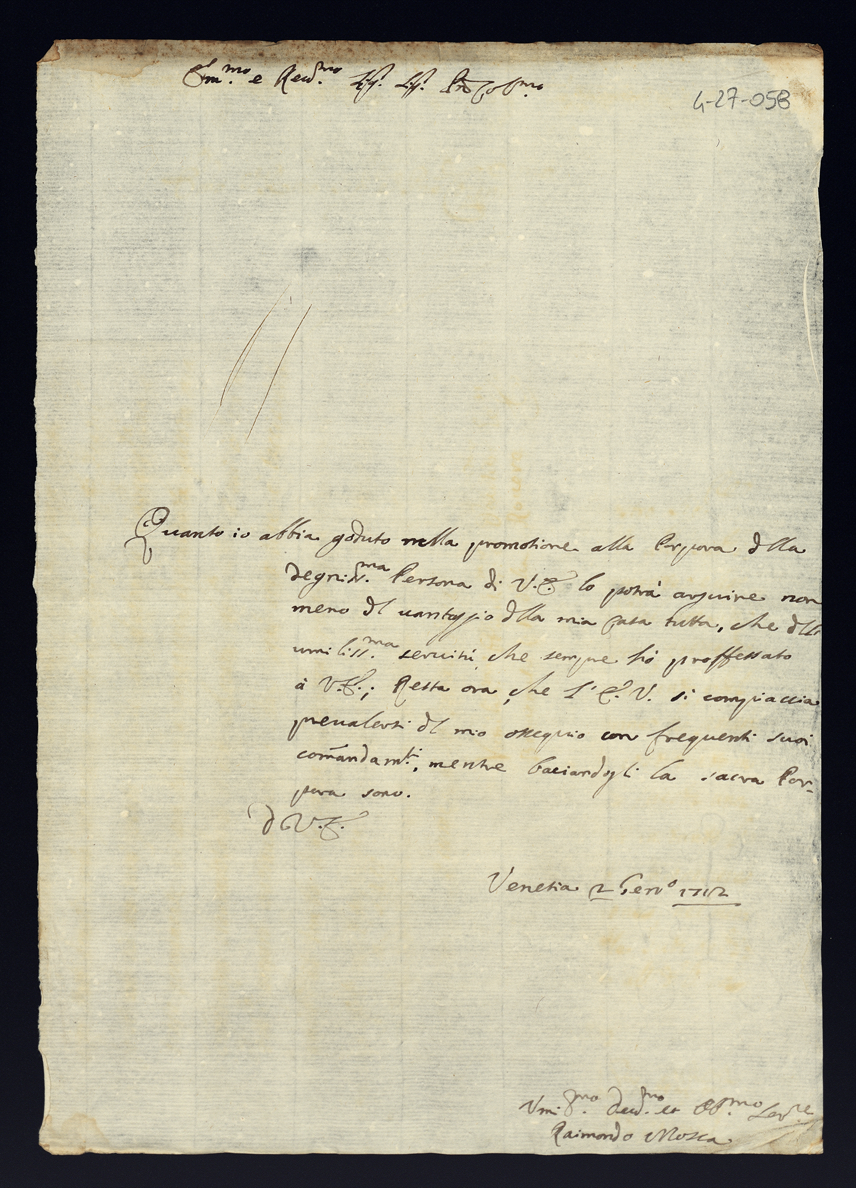 Em.mo e Reu.mo Sig. Sig. P̃ron Col.mo
4-27-058
Quanto io abbia goduto nella promotione alla Porpora della
degnis.ma Persona di V.E. lo potrà arguire non
meno dal uantaggio della mia Casa tutta, che dall'
umiliss.ma seruitù, che sempre hò proffessato
à V.E.; Resta ora, che l'E.V. si compiaccia
preualersi del mio ossequio con frequenti suoi
comãndam.ti, mentre baciandogli la sacra Por-
pora sono.
D V.E.
Venetia 2 Gen.o 1712
Vmi.mo Deu.mo et Obb.mo Ser.re
Raimondo Mosca